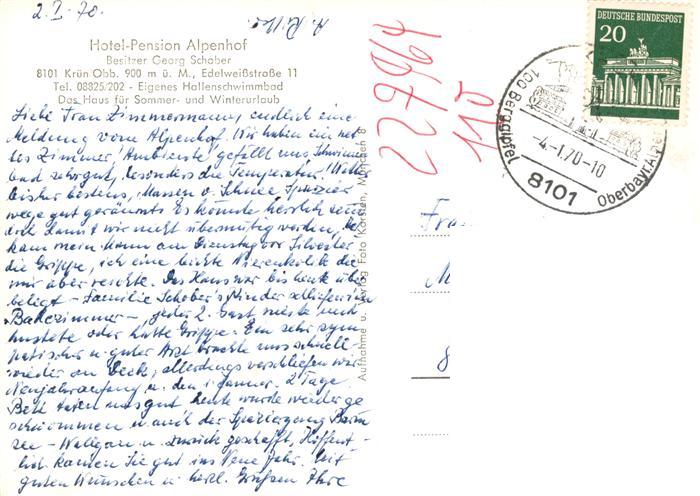 2.I.70.
Hotel-Pension Alpenhof
Besitzer Georg Schober
8101 Krün Obb. 900 m ü. M., Edelweißstraße 11
Tel. 08825/202 - Eigenes Hallenschwimmbad
Das Haus für Sommer- und Winterurlaub
Liebe Frau Zimmermann, endlich eine
Meldung vom Alpenhof. Wir haben ein net-
tes Zimmer, Ambiente gefällt uns, Schwimm
bad sehr gut, besonders die Temperatur. Wetter
bisher bestens, Massen v. Schnee, Spazier
wege gut geräumt. Es könnte herrlich sein
doch damit wir nicht übermütig werden, be
kam mein Mann am Dienstag vor Silvester
die Grippe, ich eine leichte Nierenkolik die
mir aber reichte. Das Haus war bis heute über
belegt - Familie Schober's Kinder schliefen im
Badezimmer - jeder 2. Gast
hustete oder hatte Grippe. Ein sehr sym
patischer u. guter Arzt brachte uns schnell
wieder an Deck, allerdings verschliefen wir
Neujahrsanfang u. den 1. Januar. 2 Tage
Bett taten uns gut heute wurde wieder ge
schwommen u. auch der Spaziergang Barm
see - Wallgau u. zurück geschafft, Hoffent-
lich kamen Sie gut ins Neue Jahr. Mit
guten Wünschen u. herzl. Grüßen Ihre
Aufnahme u. Verlag Foto Karsten, München 8
227964
110
DEUTSCHE BUNDESPOST
20
100 Berggipfel
-4-1.70-10
8101
Oberbayr.
Fra
M
8